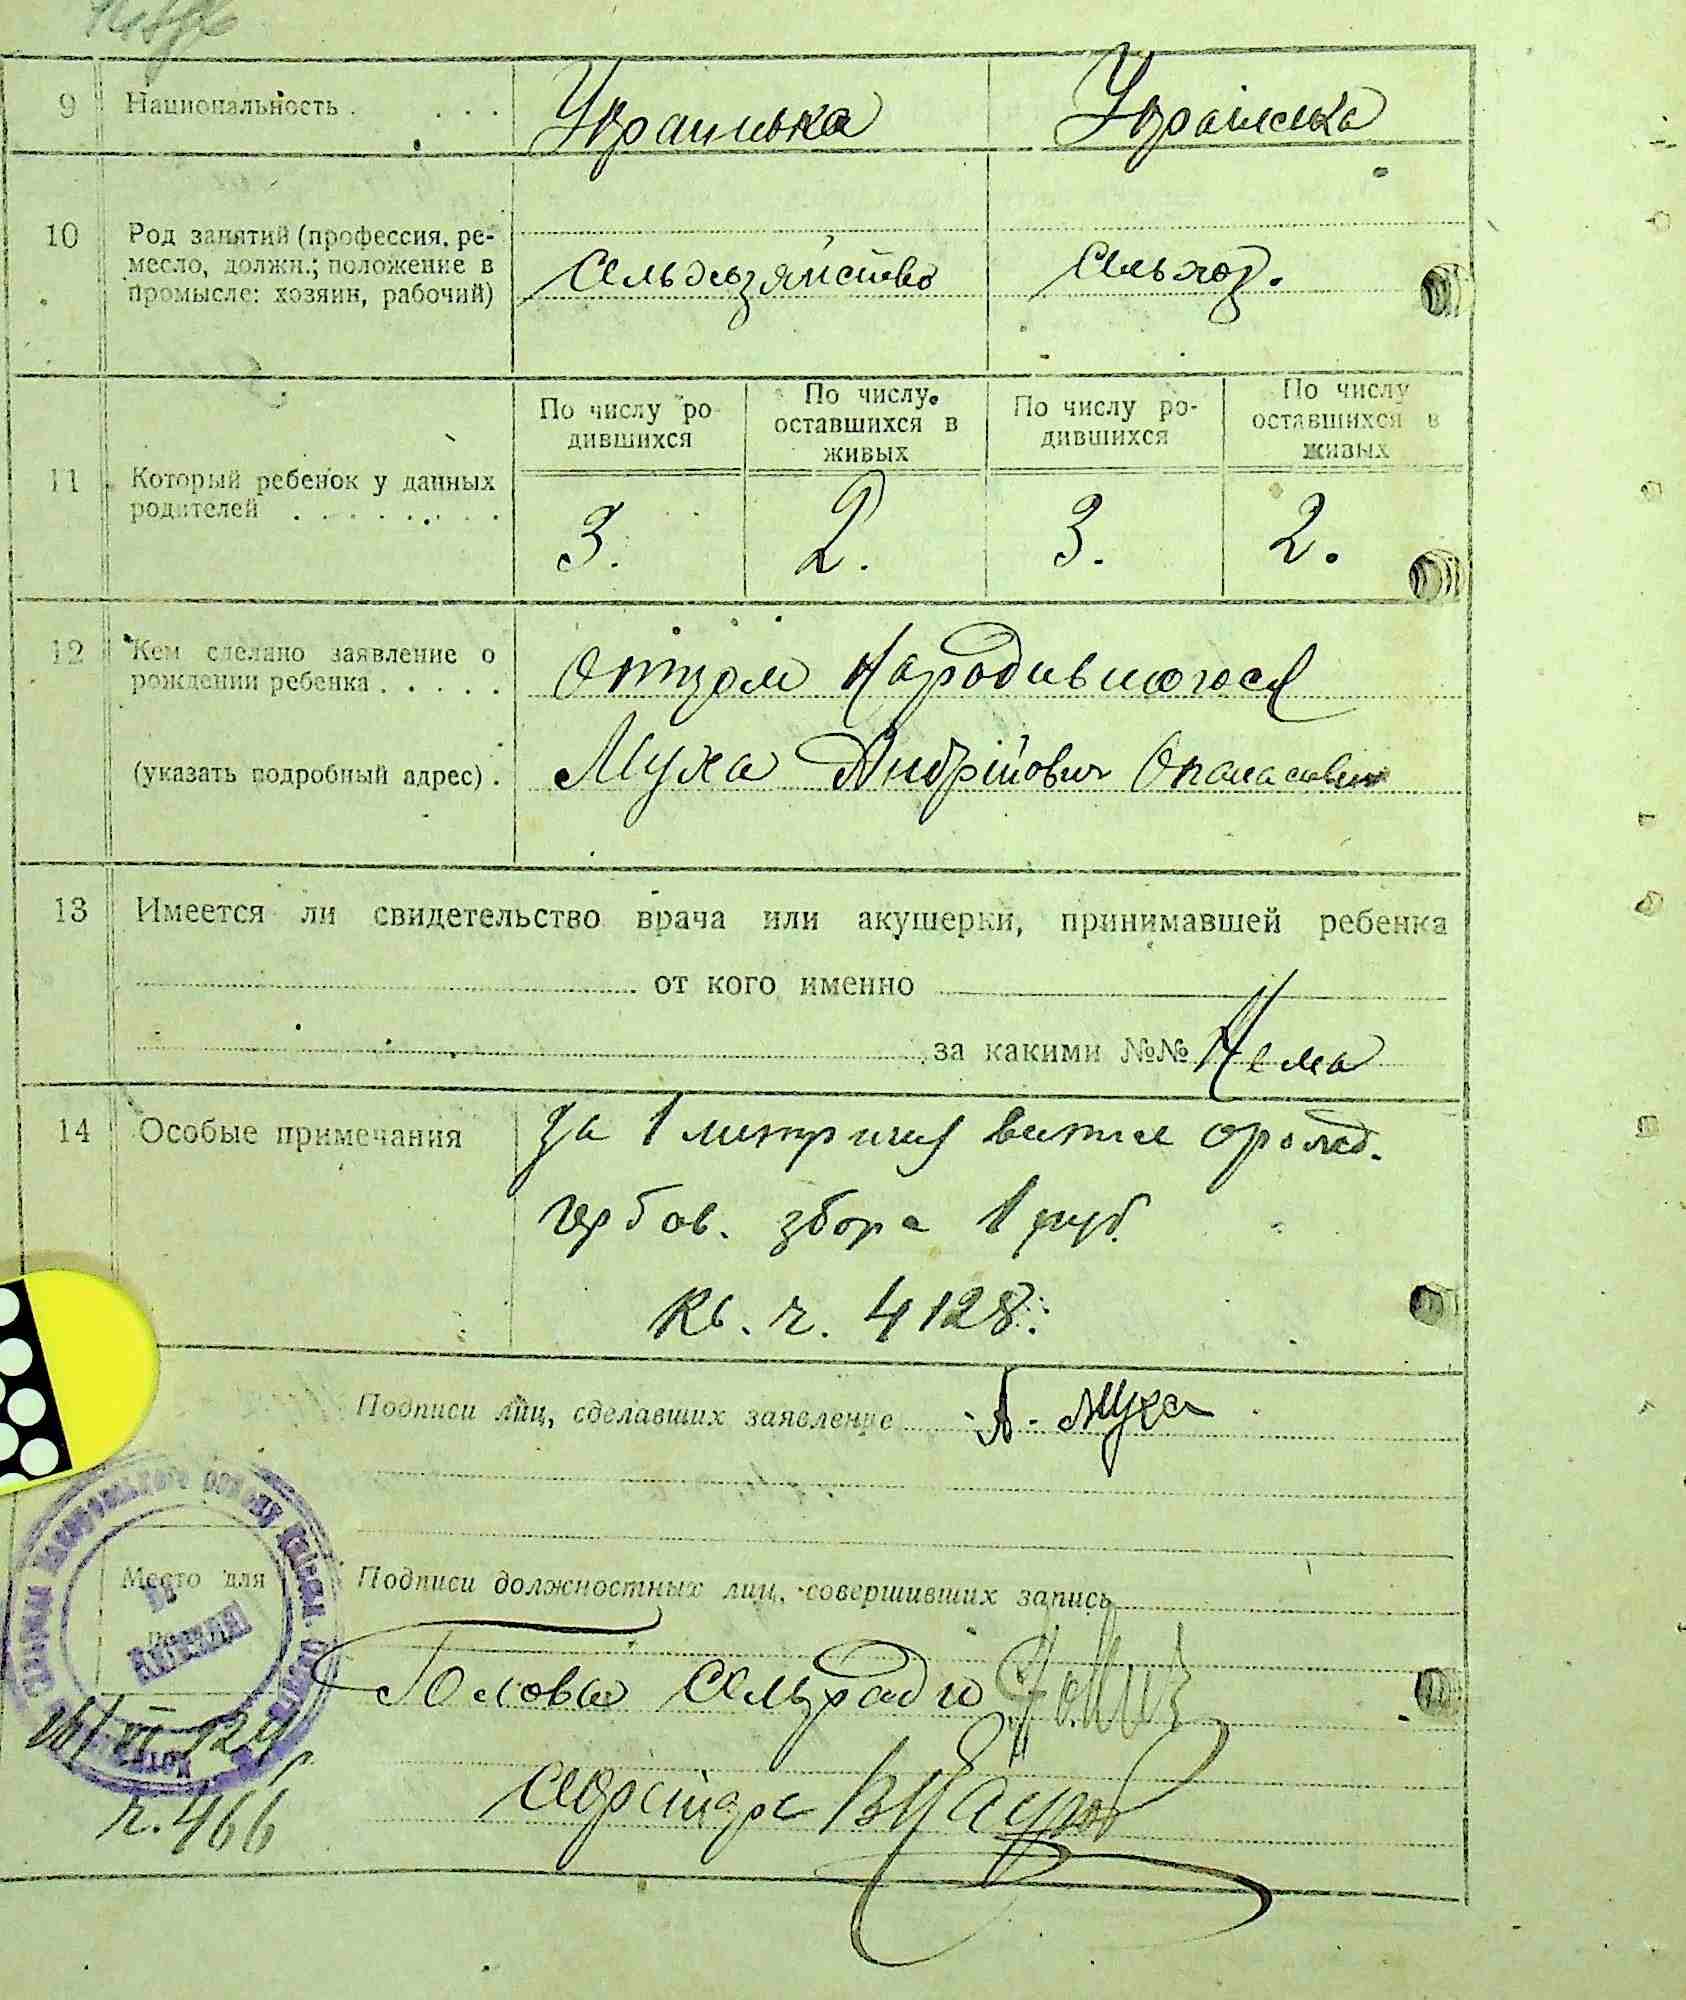 9 Национальность . . . . Украинька Украінська
10 Род занятий (профессия, ре-
месло, должн.; положение в
промысле: хозяин, рабочий)
Сельхозяйство Сельхоз.
По числу ро-
дившихся
По числу
оставшихся в
живых
По числу ро-
дившихся
По числу
оставшихся в
живых
11 Который ребенок у данных
родителей . . . . . . . .
3. 2. 3. 2.
12 Кем сделано заявление о
рождении ребенка . . . . .
Отцом народившогося
(указать подробный адрес) .
Муха Андрійович Опанасович
13 Имеется ли свидетельство врача или акушерки, принимавшей ребенка
от кого именно
за какими №№ Нема
14 Особые примечания
За 1 метричну витяг
гербов. збора 1 руб.
Кв. ч. 4128.
Подписи лиц, сделавших заявление А. Муха
Место для
печати
Подписи должностных лиц, совершивших запись
Голова Сельради
Секретарь
ч. 466